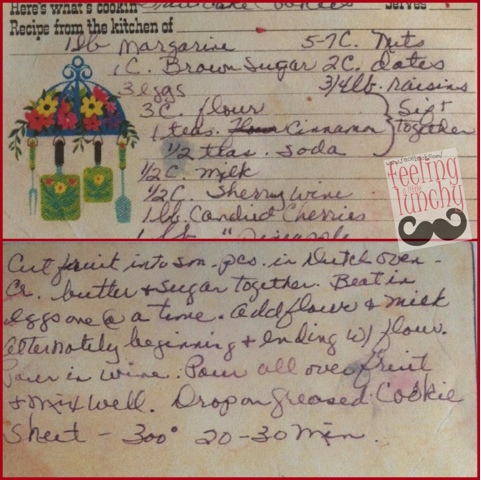 Here's what's cookin' Fruitcake Cookies Serves
Recipe from the kitchen of
1 lb Margarine 5-7 C. Nuts
1 C. Brown Sugar 2C. dates
3 eggs 3/4 lb. raisins
3 C. flour
1 teas. Cinnamon } Sift together
1/2 teas. Soda
1/2 C. Milk
1/2 C. Sherry Wine
1 lb. Candied Cherries
1 lb. " Pineapple
www.facebook.com/
feeling
lunchy
Cut fruit into sm. pcs. in Dutch oven -
Cr. butter & sugar together. Beat in
eggs one @ a time. Add flour & milk
alternately beginning & ending w/ flour.
Pour in wine. Pour all over fruit
& mix well. Drop on greased Cookie
Sheet - 300° 20-30 Min.